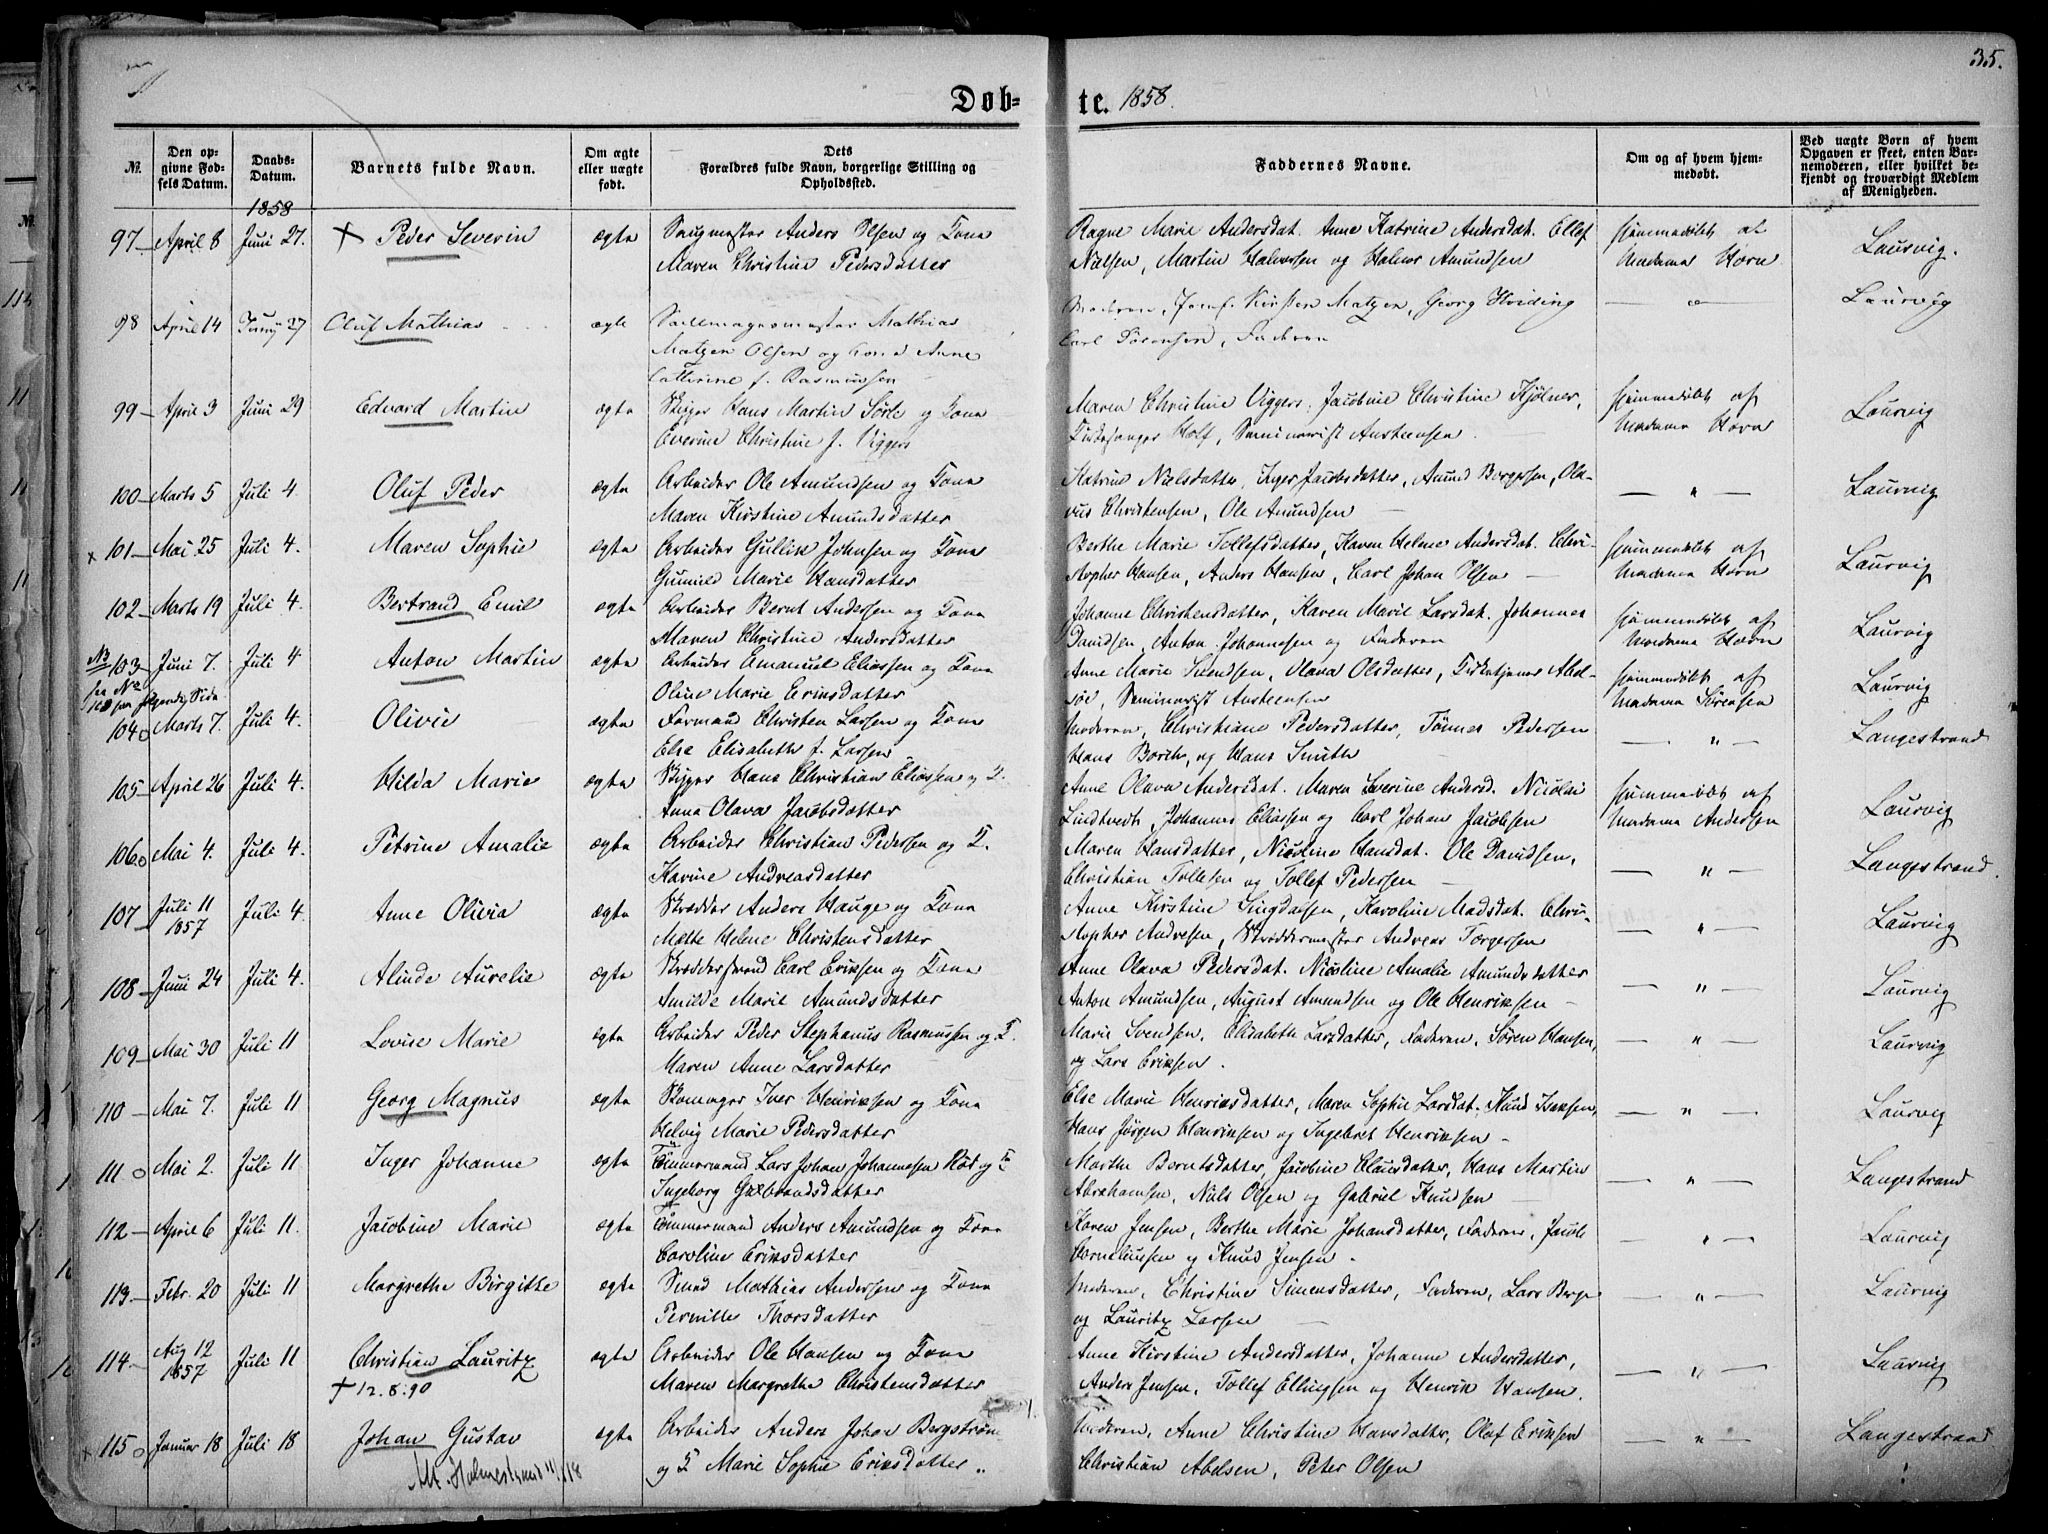 35.
Døb- te. 1858.
№. Den opgivne Fødsels Datum. Daabs-Datum. Barnets fulde Navn. Om ægte eller uægte født. Dets Forældres fulde Navn, borgerlige Stilling og Opholdssted. Faddernes Navne. Om og af hvem hjemmedøbt. Ved uægte Børn af hvem Opgaven er skeet, enten Barnemoderen, eller hvilket bekjendt og troværdigt Medlem af Menigheden.
1858
97 April 8 Juni 27. + Peder Severin ægte Anders Olsen og Kone Ragne Marie Andersdat. Anne Katrine Andersdat. Ellef hjemmedøbt af Laurvig.
Maren Christine Pedersdatter Nielsen, Martin Halvorsen og Halvor Amundsen Madame Horn
98 April 14 Juny 27 Oluf Mathias ægte Seilmagermester Mathias Moderen, Jomf. Kirsten Matzen, Georg Hviding — " Laurvig
Matzen Olsen og Kone Anne Carl Sørensen, Faderen
Cathrine f. Rasmussen
99 April 3 Juni 29 Edvard Martin ægte Hans Martin Sørle og Kone Maren Christine Viggers, Jacobine Christine Kjølner, hjemmedøbt af Laurvig
Everine Christine f. Viggers Kirkesanger Holf, Seminarist Austeensen Madame Horn
100 Marts 5 Juli 4. Oluf Peder ægte Arbeider Ole Amundsen og Kone Katrine Nielsdatter, Inger Jacobsdatter, Amund Borgersen, Ola- — " — Laurvig
Maren Kirstine Amundsdatter vus Christensen, Ole Amundsen
x 101 Mai 25 Juli 4. Maren Sophie ægte Arbeider Gullik Johnsen og Kone Berthe Marie Tollefsdatter, Karen Helene Andersdat. Chri- hjemmedøbt af Laurvig
Gunnild Marie Hansdatter stopher Hansen, Anders Hansen, Carl Johan Olsen Madame Horn
102 Marts 19 Juli 4. Bertrand Emil ægte Arbeider Bernt Andersen og Kone Johanne Christensdatter, Karen Marie Larsdat. Johannes hjemmedøbt af Laurvig
Maren Christine Andersdatter Davidsen, Anton Johannesen og Faderen Madame Horn
103 Juni 7. Juli 4 Anton Martin ægte Arbeider Emanuel Eliassen og Kone Anne Marie Svendsen, Olava Olsdatter, Kirketjener Abel- hjemmedøbt af Laurvig
følgende Side Oline Marie Eriksdatter Seminarist Austeensen Madame Sørensen
104 Marts 7. Juli 4. Olivie ægte Formand Christen Larsen og Kone Moderen, Christiane Pedersdatter, Tønnes Pedersen — " — Langestrand
Else Elisabeth f. Larsen Hans Borch, og Hans Smith
105 April 26 Juli 4. Hilda Marie ægte Hans Christian Eliassen og K. Anne Olava Andersdat. Maren Severine Andersd. Nicolai hjemmedøbt af Laurvig
Anna Olava Jacobsdatter Lindtvedt, Johannes Eliassen og Carl Johan Jacobsen Madame Andersen
106 Mai 4. Juli 4. Petrine Amalie ægte Arbeider Christian Pedersen og K. Maren Hansdatter, Nicoline Hansdat. Ole Davidsen, — " — Langestrand.
Karine Andreasdatter Christian Tollefsen og Tollef Pedersen
107 Juli 11 1857 Juli 4. Anne Olivia ægte Skrædder Anders Hauge og Kone Anne Kirstine Lingdalsen, Karoline Madsdat. Chri- — " — Laurvig
Mette Helene Christensdatter stopher Andresen, Skræddermester Andreas Torgersen
108 Juni 24 Juli 4. Alinde Aurelie ægte Skræddersvend Carl Eriksen og Kone Anne Olava Pedersdat. Nicoline Amalie Amundsdatter — " — Laurvig
Amilde Marie Amundsdatter Anton Amundsen, August Amundsen og Ole Henriksen
109 Mai 30 Juli 11 Lovise Marie ægte Arbeider Peder Stephanus Rasmussen og K. Marie Svendsen, Elisabeth Larsdatter, Faderen, Søren Hansen, — " — Laurvig
Maren Anne Larsdatter og Lars Eriksen.
110 Mai 7. Juli 11 Georg Magnus ægte Skomager Iver Henriksen og Kone Else Marie Henriksdatter, Maren Sophie Larsdat. Knud Isaksen, — " — Laurvig
Helvig Marie Pedersdatter Hans Jørgen Henriksen og Ingebret Henriksen
111 Mai 2. Juli 11 Inger Johanne ægte Tømmermand Lars Johan Johannesen Rød og K. Marthe Berntsdatter, Jacobine Clausdatter, Hans Martin — " — Langestrand
Ingeborg Gulbrandsdatter Abrahamsen, Niels Olsen og Gabriel Knudsen
112 April 6 Juli 11. Jacobine Marie ægte Tømmermand Anders Amundsen og Kone Karen Jensen, Berthe Marie Johansdatter, Faderen, Jacob — " — Laurvig
Caroline Eriksdatter Corneliussen og Knud Jensen.
113 Febr. 20 Juli 11 Margrethe Birgitte ægte Smed Mathias Andersen og Kone Moderen, Christine Simensdatter, Faderen, Lars Berge — " — Laurvig
Pernille Thorsdatter og Lauritz Larsen
114 Aug 12 1857 Juli 11 Christian Lauritz ægte Arbeider Ole Hansen og Kone Anne Kirstine Andersdatter, Johanne Andersdatter, — " — Laurvig
+ 12.8.90 Maren Margrethe Christensdatter Anders Jensen, Tollef Ellingsen og Henrik Hansen.
x 115 Januar 18 Juli 18 Johan Gustav ægte Arbeider Anders Johan Bergstrøm Moderen, Anne Christine Hansdatter, Olaf Eriksen — " — Langestrand
Att. Holmestrand og K Marie Sophie Eriksdatter Christian Abelsen, Peter Olsen